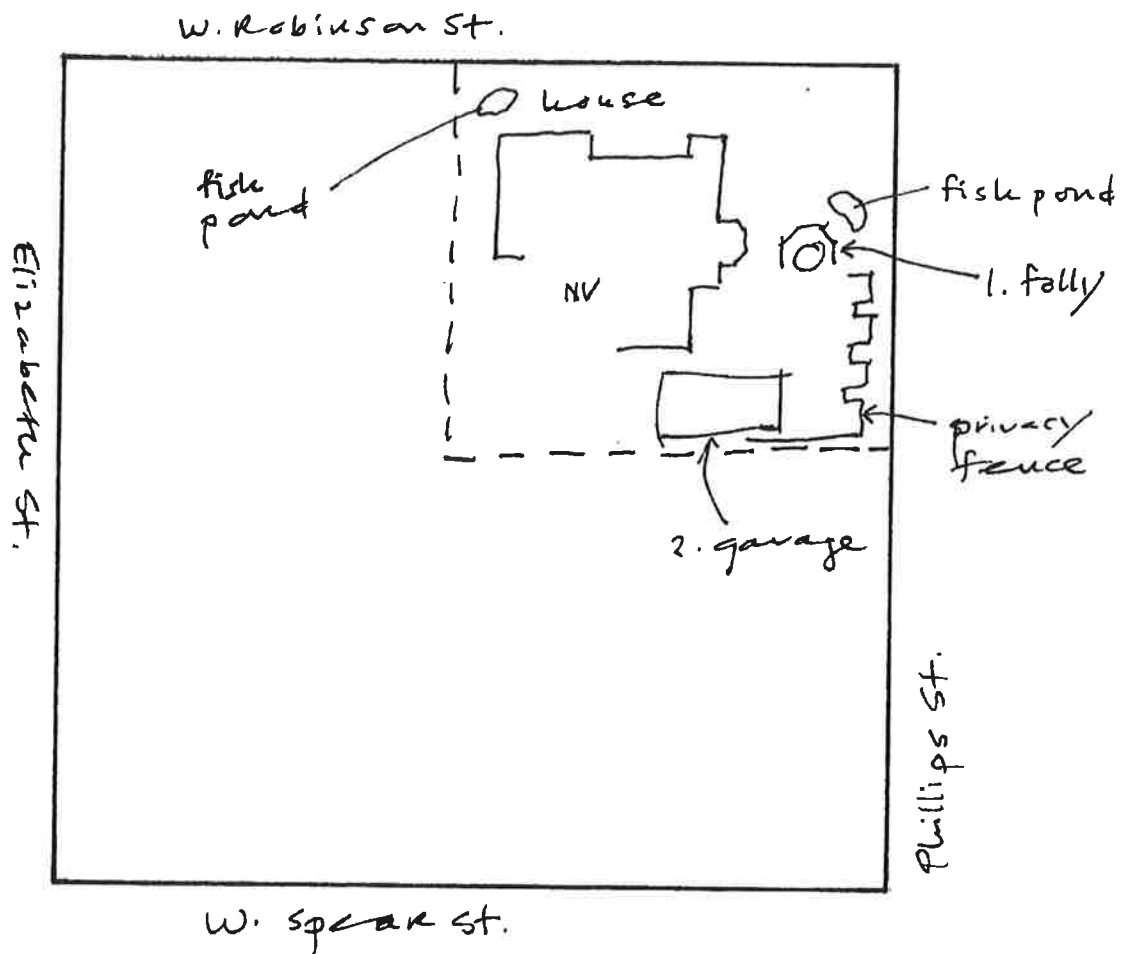 W. Robinson St.
house
fish
pond
fish pond
1. folly
NV
privacy
fence
2. garage
Elizabeth St.
Phillips St.
W. Spear St.